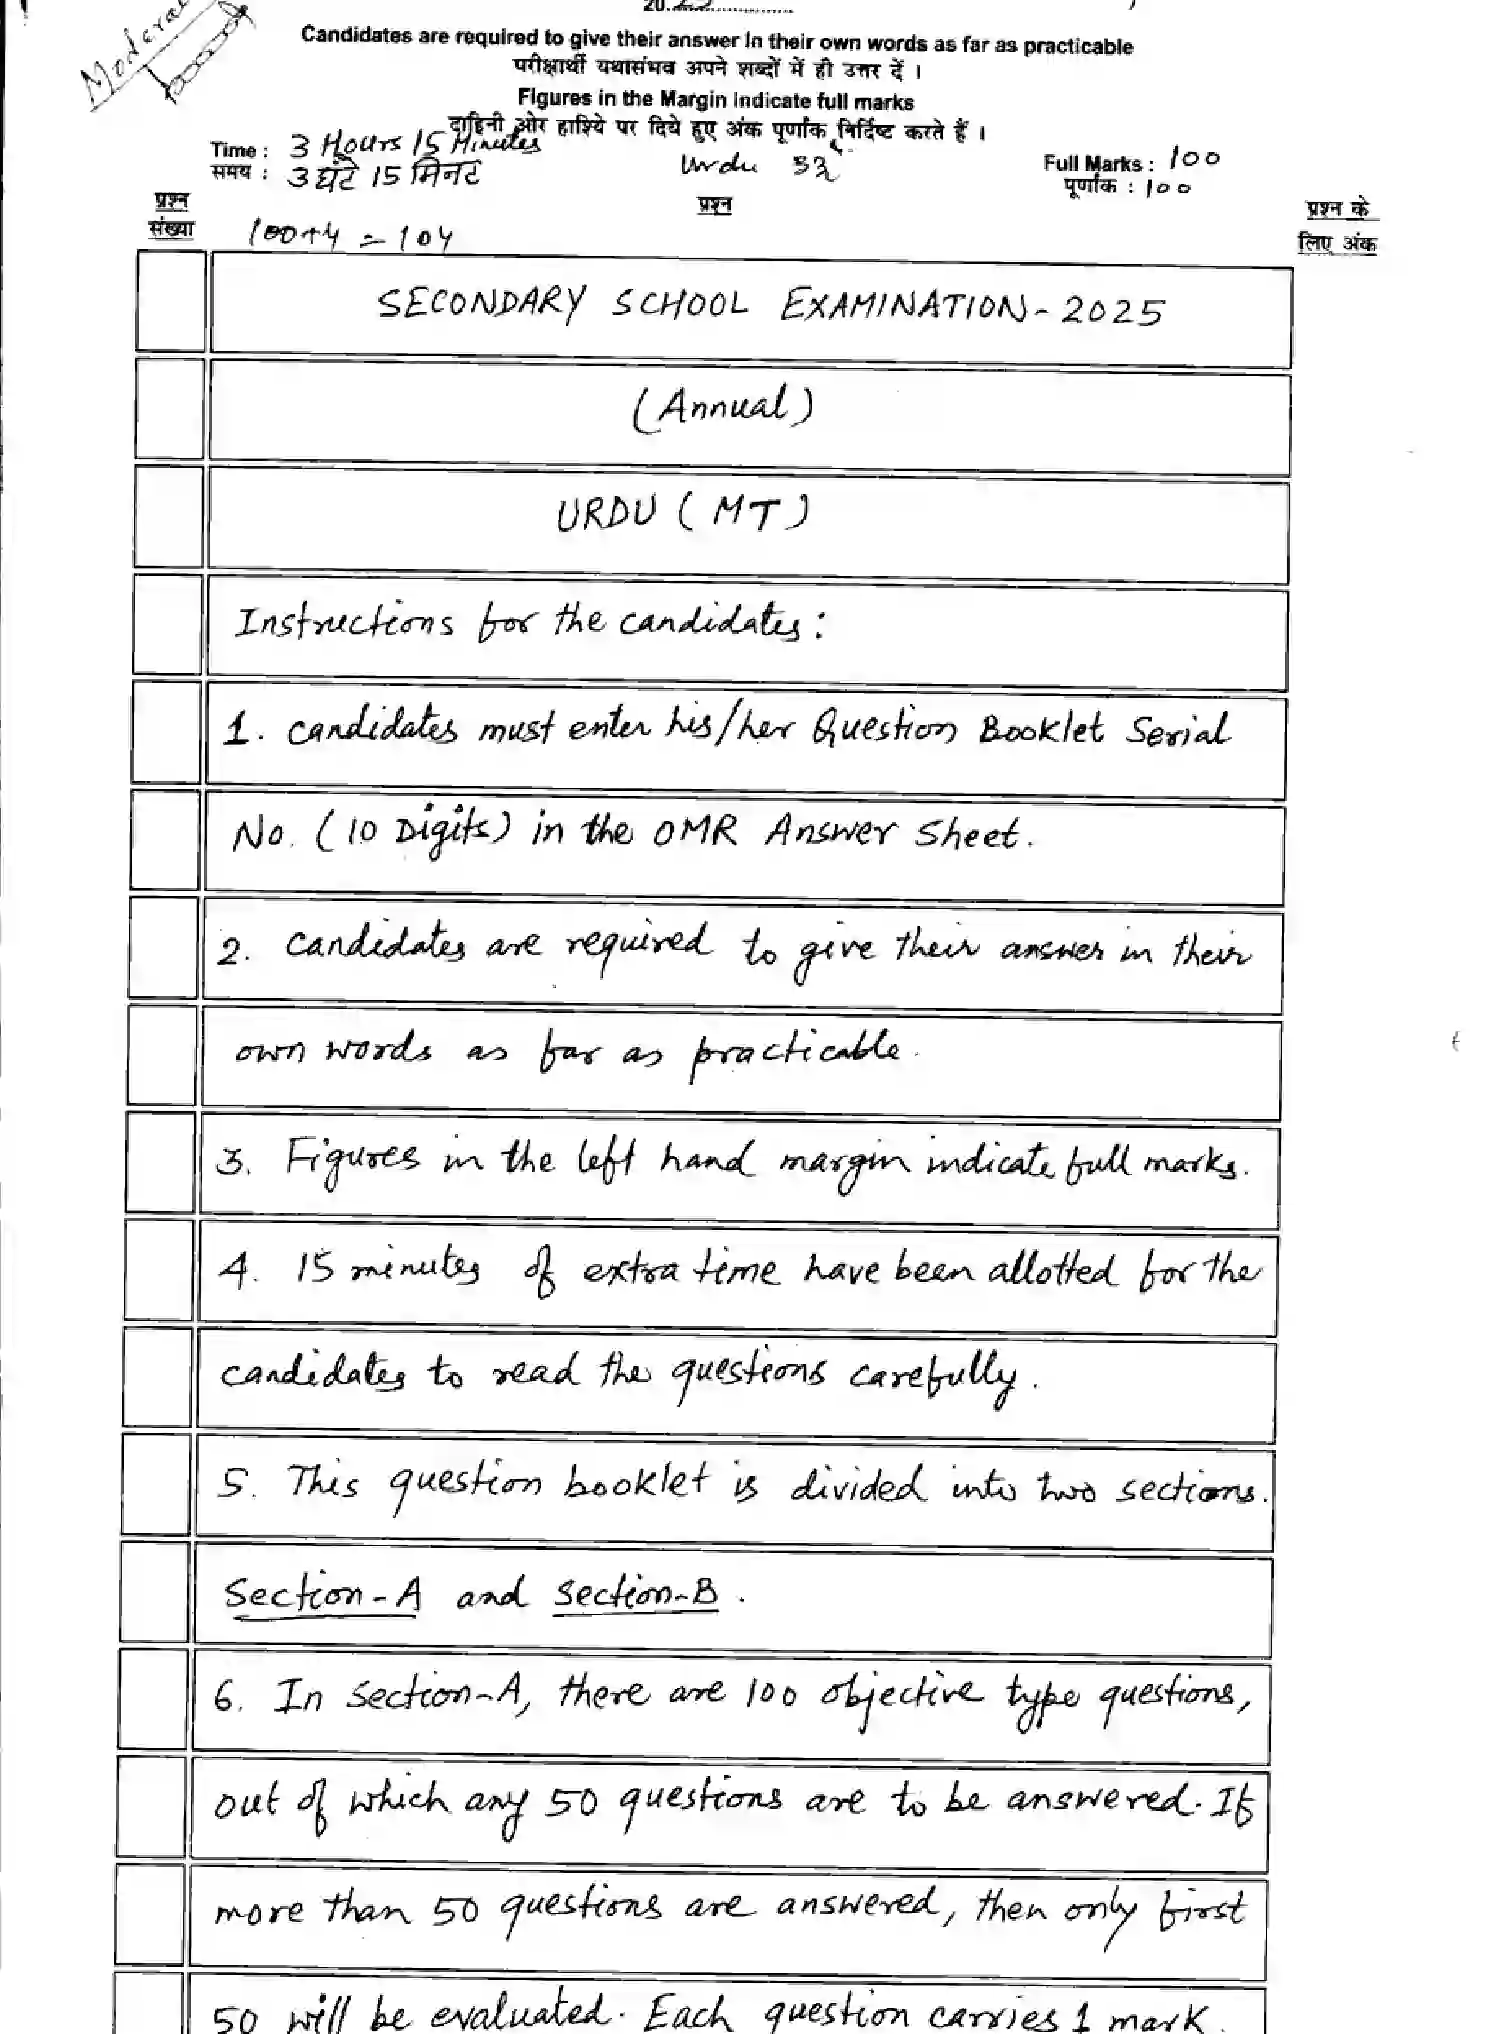 Moderat
20.25
Candidates are required to give their answer in their own words as far as practicable
परीक्षार्थी यथासंभव अपने शब्दों में ही उत्तर दें ।
Figures in the Margin indicate full marks
दाहिनी ओर हाशिये पर दिये हुए अंक पूर्णांक निर्दिष्ट करते हैं ।
Time : 3 Hours 15 Minutes Urdu Full Marks : 100
समय : 3 घंटे 15 मिनट पूर्णांक : 100
प्रश्न संख्या प्रश्न प्रश्न के लिए अंक
100+4 = 104
SECONDARY SCHOOL EXAMINATION-2025
(Annual)
URDU (MT)
Instructions for the candidates:
1. Candidates must enter his/her Question Booklet Serial
No. (10 Digits) in the OMR Answer Sheet.
2. Candidates are required to give their answer in their
own words as far as practicable.
3. Figures in the left hand margin indicate full marks.
4. 15 minutes of extra time have been allotted for the
candidates to read the questions carefully.
5. This question booklet is divided into two sections.
Section-A and Section-B.
6. In Section-A, there are 100 objective type questions,
out of which any 50 questions are to be answered. If
more than 50 questions are answered, then only first
50 will be evaluated. Each question carries 1 mark.